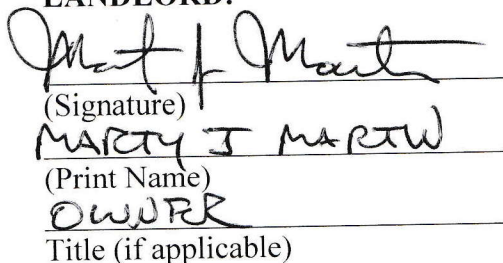 LANDLORD:
(Signature)
MARTY J MARTIN
(Print Name)
OWNER
Title (if applicable)